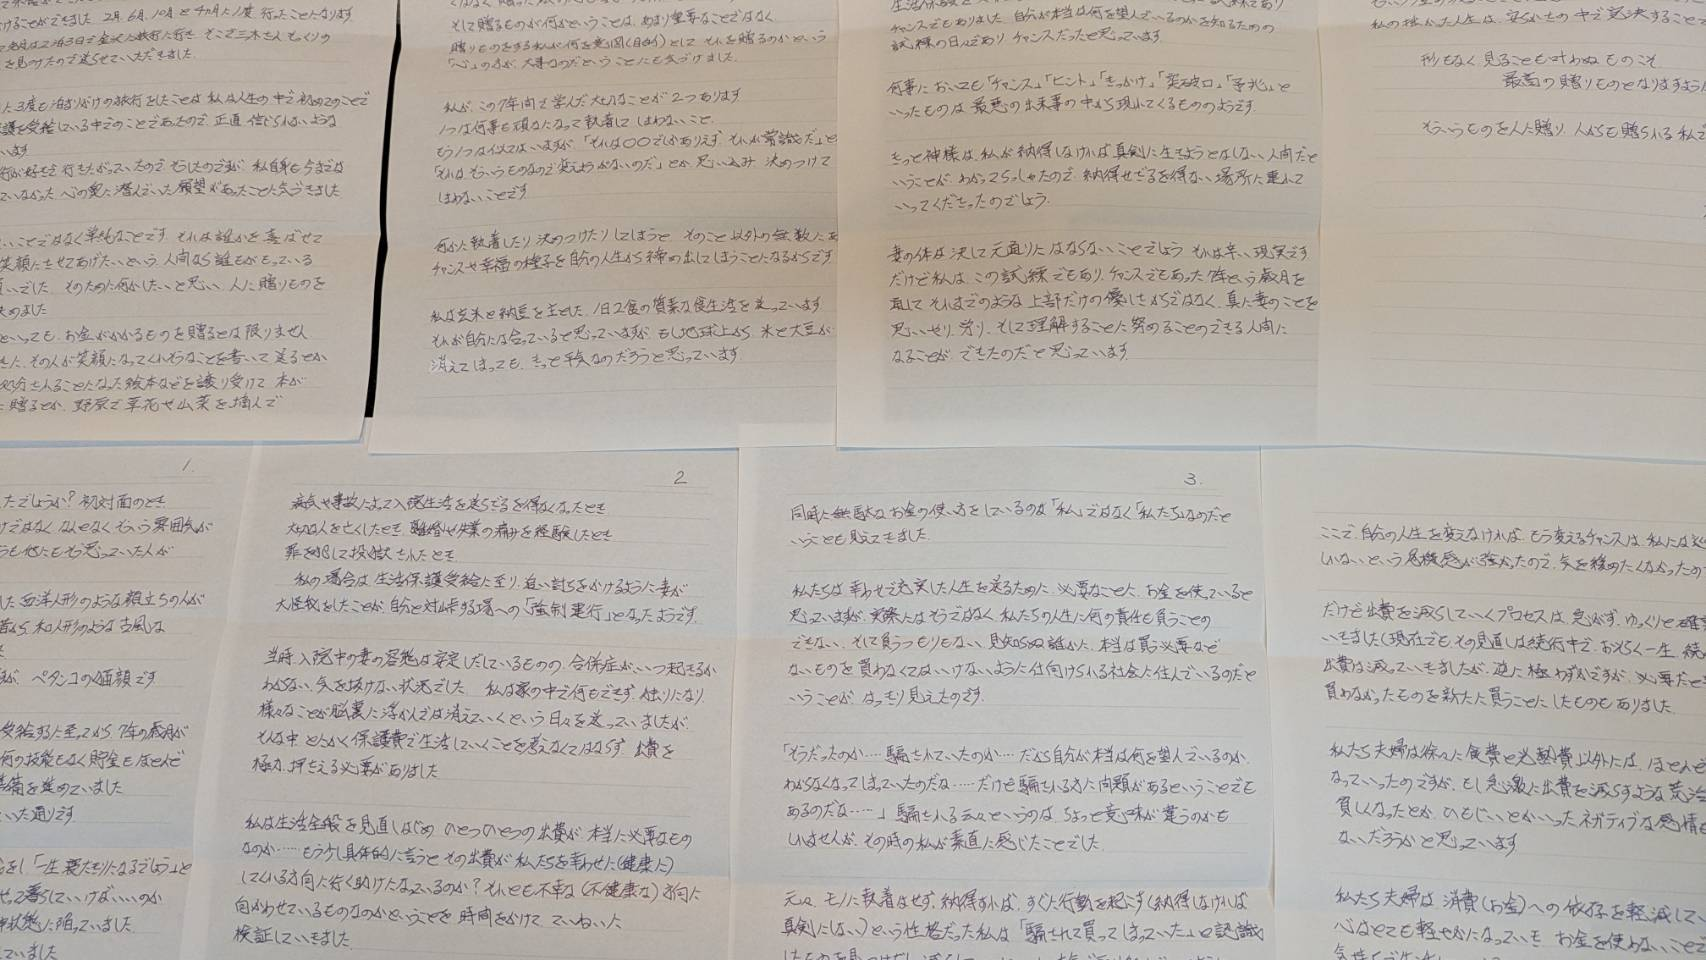 けることができました 2月、6月、10月と4ヵ月に1度 行ったことになります
を見つけたので送らせていただきました
に3度も泊まりがけの旅行をしたことは 私は人生の中で初めてのことで
保護を受給している中でのことであったので、正直 信じられないような
います
行が好きで行きたがっていたので そうしたのですが、私自身も今までは
ていなかった 心の奥に潜んでいた願望があったことに気づきました
いことではなく単純なことです それは誰かを喜ばせて
笑顔にさせてあげたいという 人間なら誰もがもっている
いでした そのために何かしたいと思い、人に贈りものを
決めました
といっても、お金がかかるものを贈るとは限りません
その人が笑顔になってくれそうなことを書いて送るとか
処分されることになった絵本などを譲り受けて 本が
に贈るとか、野原で草花や山菜を摘んで
そして贈るものが何かということは、あまり重要なことではなく
贈りものをする私が何を意図(目的)として それを贈るのかという
「心」の方が、大事なのだということにも気づけました
私が、この7年間で学んだ大切なことが2つあります
1つは何事も頑なになって執着してしまわないこと
もう1つは似ていますが「それは〇〇でしかありえず それが常識だ」と
「それは そういうものなので変えようがないのだ」とか、思い込み 決めつけて
しまわないことです
何かに執着したり決めつけたりしてしまうと そのこと以外の無数にあ
チャンスや幸福の種子を自分の人生から締め出してしまうことになるからです
私は玄米と納豆を主とした、1日2食の質素な食生活を送っています
それが自分には合っていると思っていますが、もし地球上から 米と大豆が
消えてしまっても、きっと平気なのだろうと思っています
チャンスでもありました 自分が本当は何を望んでいるのかを知るための
試練の日々であり チャンスだったと思っています
何事においても「チャンス」「ヒント」「きっかけ」「突破口」「予兆」と
いったものは 最悪の出来事の中から現れてくるもののようです
きっと神様は、私が納得しなければ真剣に生きようとはしない人間だと
いうことが、わかってらっしゃたので 納得せざるを得ない場所に連れて
いってくださったのでしょう
妻の体は決して元通りにはならないことでしょう それは辛い現実です
だけど私は、この試練でもあり、チャンスでもあった7年という歳月を
通して それまでのような上部だけの優しさからではなく、真に妻のことを
思いやり、労り、そして理解することに努めることのできる人間に
なることが、できたのだと思っています
形もなく 見ることも叶わぬものこそ
最高の贈りものとなりますように
そういうものを人に贈り、人からも贈られる私で
1.
たでしょうか? 初対面のとき
けではなく なんとなく そういう雰囲気が
した西洋人形のような顔立ちの人が
和人形のような古風な
が、ペタンコの価額です
受給するに至ってから、7年の歳月が
何の技能もなく貯金もほとんど
準備を進めていました
いた通りです
をし「一生寝たきりになるでしょう」と
って暮らしていけばいいのか
状態に陥っていました
ていました
2
病気や事故によって入院生活を送らざるを得なくなったとき
大切な人を亡くしたとき 離婚や失業の痛みを経験したとき
罪を犯して投獄されたとき
私の場合は生活保護受給に至り、追い討ちをかけるように妻が
大怪我をしたことが、自分と対峙する場への「強制連行」となったようです
当時、入院中の妻の容態は安定しだしているものの、合併症がいつ起きるか
わからない、気を抜けない状況でした 私は家の中で何もできず、ただ
様々なことが脳裏に浮かんでは消えていくという日々を送っていましたが
そんな中 とにかく保護費で生活していくことを考えなくてはならず 出費を
極力 押さえる必要がありました
私は生活全般を見直しはじめ ひとつひとつの出費が、本当に必要なもの
なのか……もう少し具体的に言うと その出費が私たちを幸わせに(健康に)
している方向に行く助けになっているのか? それとも不幸な(不健康な)方向に
向かわせているものなのかということを 時間をかけて ていねいに
検証していきました
3.
同時に無駄なお金の使い方をしているのは「私」ではなく「私たち」なのだと
いうことも見えてきました
私たちは幸わせで充実した人生を送るために、必要なことに お金を使っていると
思っていますが、実際にはそうではなく、私たちの人生に何の責任も負うことの
できない、そして負うつもりもない見知らぬ誰かに、本当は買う必要など
ないものを買わなくてはいけないように仕向けられる社会に住んでいるのだと
いうことが、はっきり見えたのです
「そうだったのか……騙されていたのか……だから自分が本当は何を望んでいるのか、
わからなくなってしまっていたのだな……だけど騙される方に問題があるということでも
あるのだな……」騙される云々というのは、ちょっと意味が違うのかも
しれませんが、その時の私が素直に感じたことでした
元々、モノに執着はせず、納得すれば、すぐに行動を起こす(納得しなければ
真剣にしない)という性格だった私は「騙されて買ってしまっていた」と認識
ここで、自分の人生を変えなければ、もう変えるチャンスは、私には
しいないという危機感が強かったので、気を緩めたくなかったの
だけど出費を減らしていくプロセスは、急がず、ゆっくりと確実
いきました(現在でも、その見直しは続行中で、おそらく一生、続
出費は減っていきましたが、逆に極わずかですが、必要だと
買わなかったものを新たに買うことにしたものもありました
私たち夫婦は徐々に食費と光熱費以外には、ほとんど
なっていったのですが、もし急激に出費を減らすような荒治
貧しくなったとか、ひもじいとかいったネガティブな感情を
ないだろうかと思っています
私たち夫婦は、消費(お金)への依存を軽減して
心はとても軽やかになっていき、お金を使わないことで